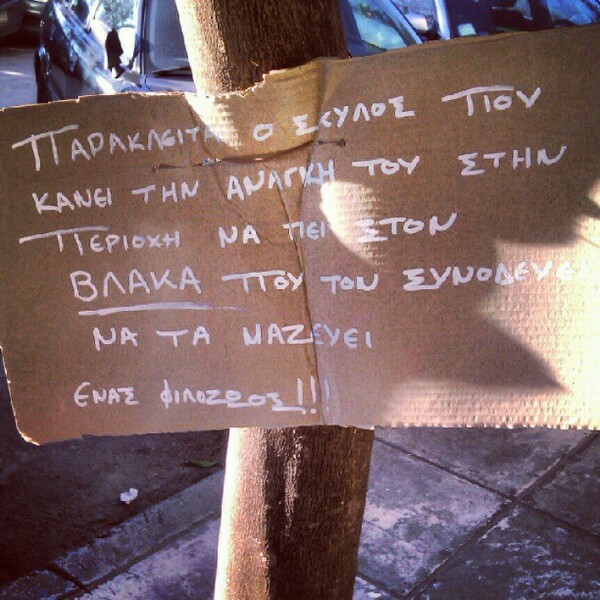 ΠΑΡΑΚΛΕΙΤΑΙ Ο ΣΚΥΛΟΣ ΠΟΥ
ΚΑΝΕΙ ΤΗΝ ΑΝΑΓΚΗ ΤΟΥ ΣΤΗΝ
ΠΕΡΙΟΧΗ ΝΑ ΠΕΙ ΣΤΟΝ
ΒΛΑΚΑ ΠΟΥ ΤΟΝ ΣΥΝΟΔΕΥΕΙ
ΝΑ ΤΑ ΜΑΖΕΥΕΙ
ΕΝΑΣ ΦΙΛΟΖΩΟΣ!!!